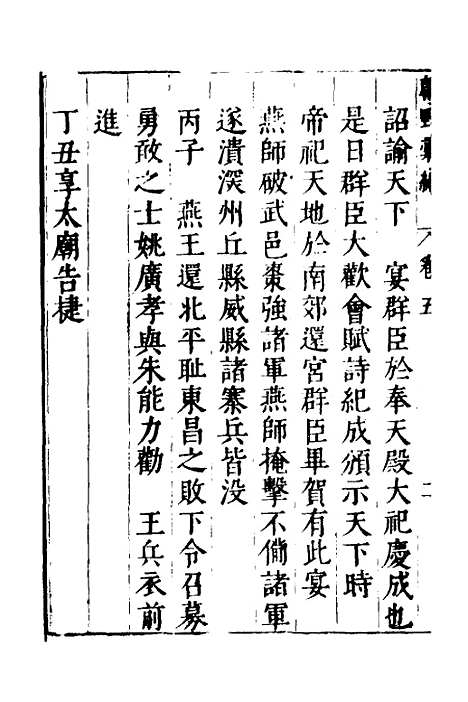 卷五
二
詔諭天下　宴群臣於奉天殿大祀慶成也
是日群臣大歡會賦詩紀成頒示天下時
帝祀天地於南郊還宮群臣畢賀有此宴
燕師破武邑棗強諸軍燕師掩擊不備諸軍
遂潰深州丘縣威縣諸寨兵皆没
丙子　燕王還北平耻東昌之敗下令召募
勇敢之士姚廣孝與朱能力勸　王兵衣前
進
丁丑享太廟告捷